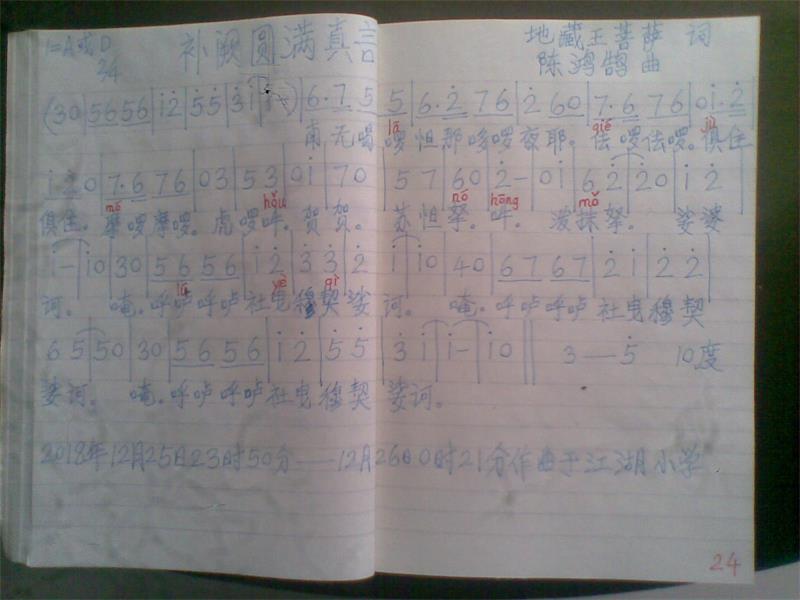 1=A或D 补阙圆满真言 地藏王菩萨 词
34 陈鸿鹄 曲
(30|5656|i2̇|5̇5̇|3̇i|i-)|6.75|5|6.2̇76|2̇60|7.676|0i.2̇
南无喝 啰怛那哆啰夜耶。佉啰佉啰。俱住
lā qié jù
i2̇0|7.676|035|53̇|0i|70|57|60|2̇-|0i|62̇|2̇0|i2̇
俱住。摩啰摩啰。虎啰吽。贺贺。苏怛拏。吽。泼抹拏。娑婆
mó hǒu nó hōng mǒ
i-|i0|30|5656|i2̇|3̇3̇|2̇|i|i0|40|6767|2̇i|2̇2̇
诃。唵。呼嚧呼嚧社曳穆契娑诃。唵。呼嚧呼嚧社曳穆契
lú yè qì
65|50|30|5656|i2̇|5̇5̇|3̇i|i-|i0‖ 3—5̇ 10度
娑诃。唵。呼嚧呼嚧社曳穆契娑诃。
2018年12月25日23时50分——12月26日0时21分作曲于江湖小学
24